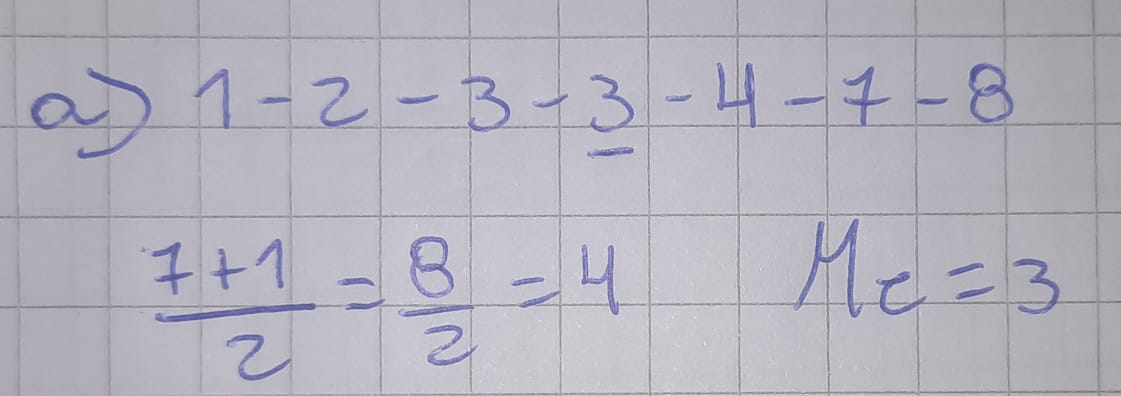 a) 1 - 2 - 3 - 3 - 4 - 7 - 8
7+1/2 = 8/2 = 4 Me = 3